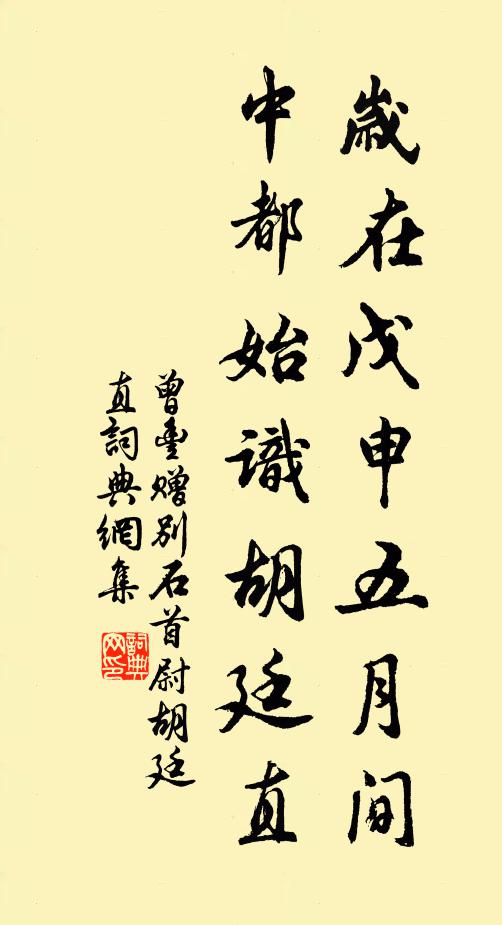 歲在戊申五月間
中都始識胡廷直
曾豐贈别石首尉胡廷
直詞典網集
詞典
网印